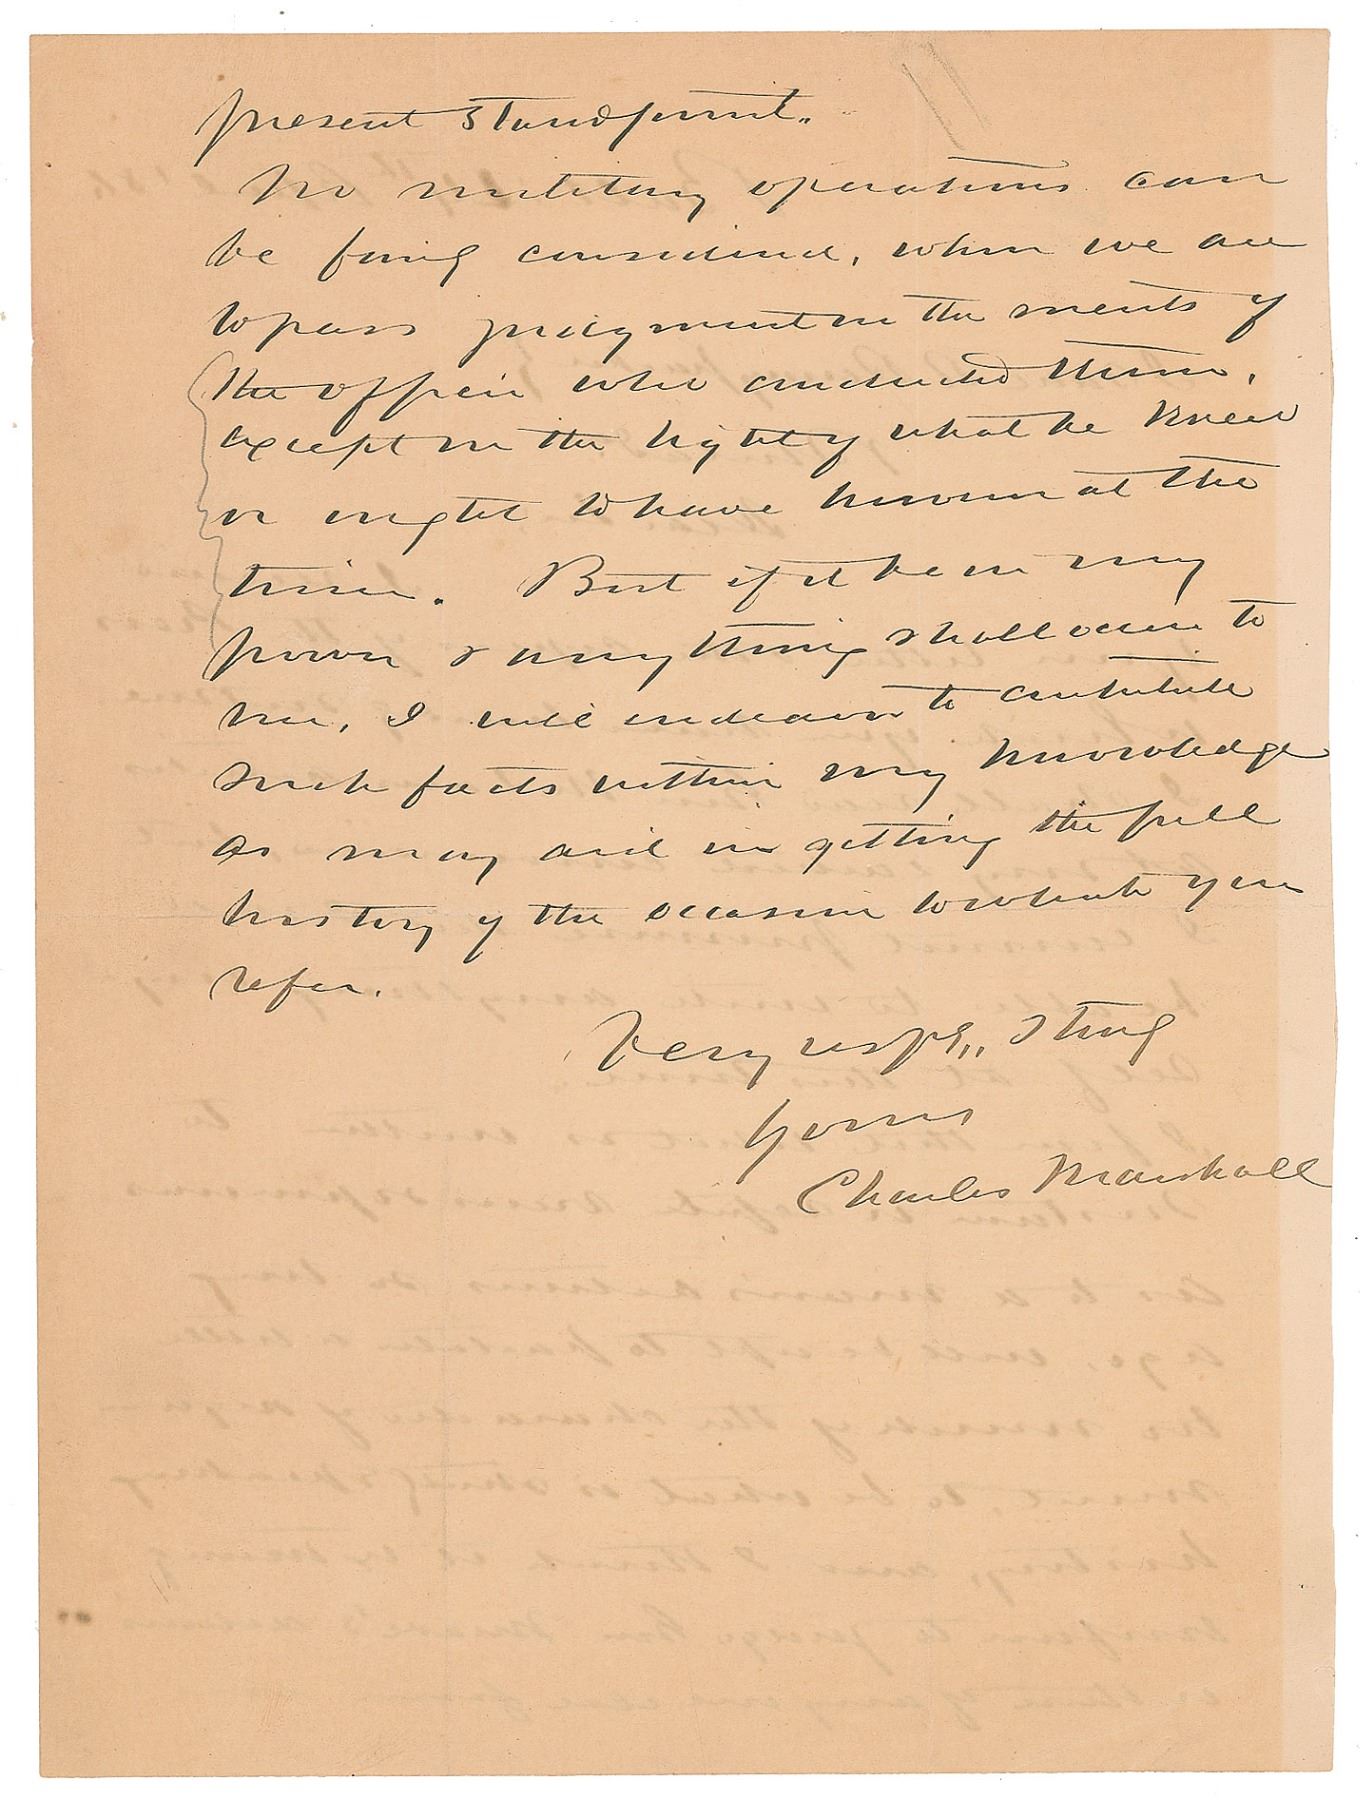 present standpoint.
No military operations can
be fairly considered, when we are
to pass judgment on the merits of
the officer who conducted them,
except in the light of what he knew
or ought to have known at the
time. But if it be in my
power & anything shall occur to
me, I will endeavor to contribute
such facts within my knowledge
as may aid in getting the full
history of the occasion to which you
refer.
Very respy,, & truly
yours
Charles Marshall